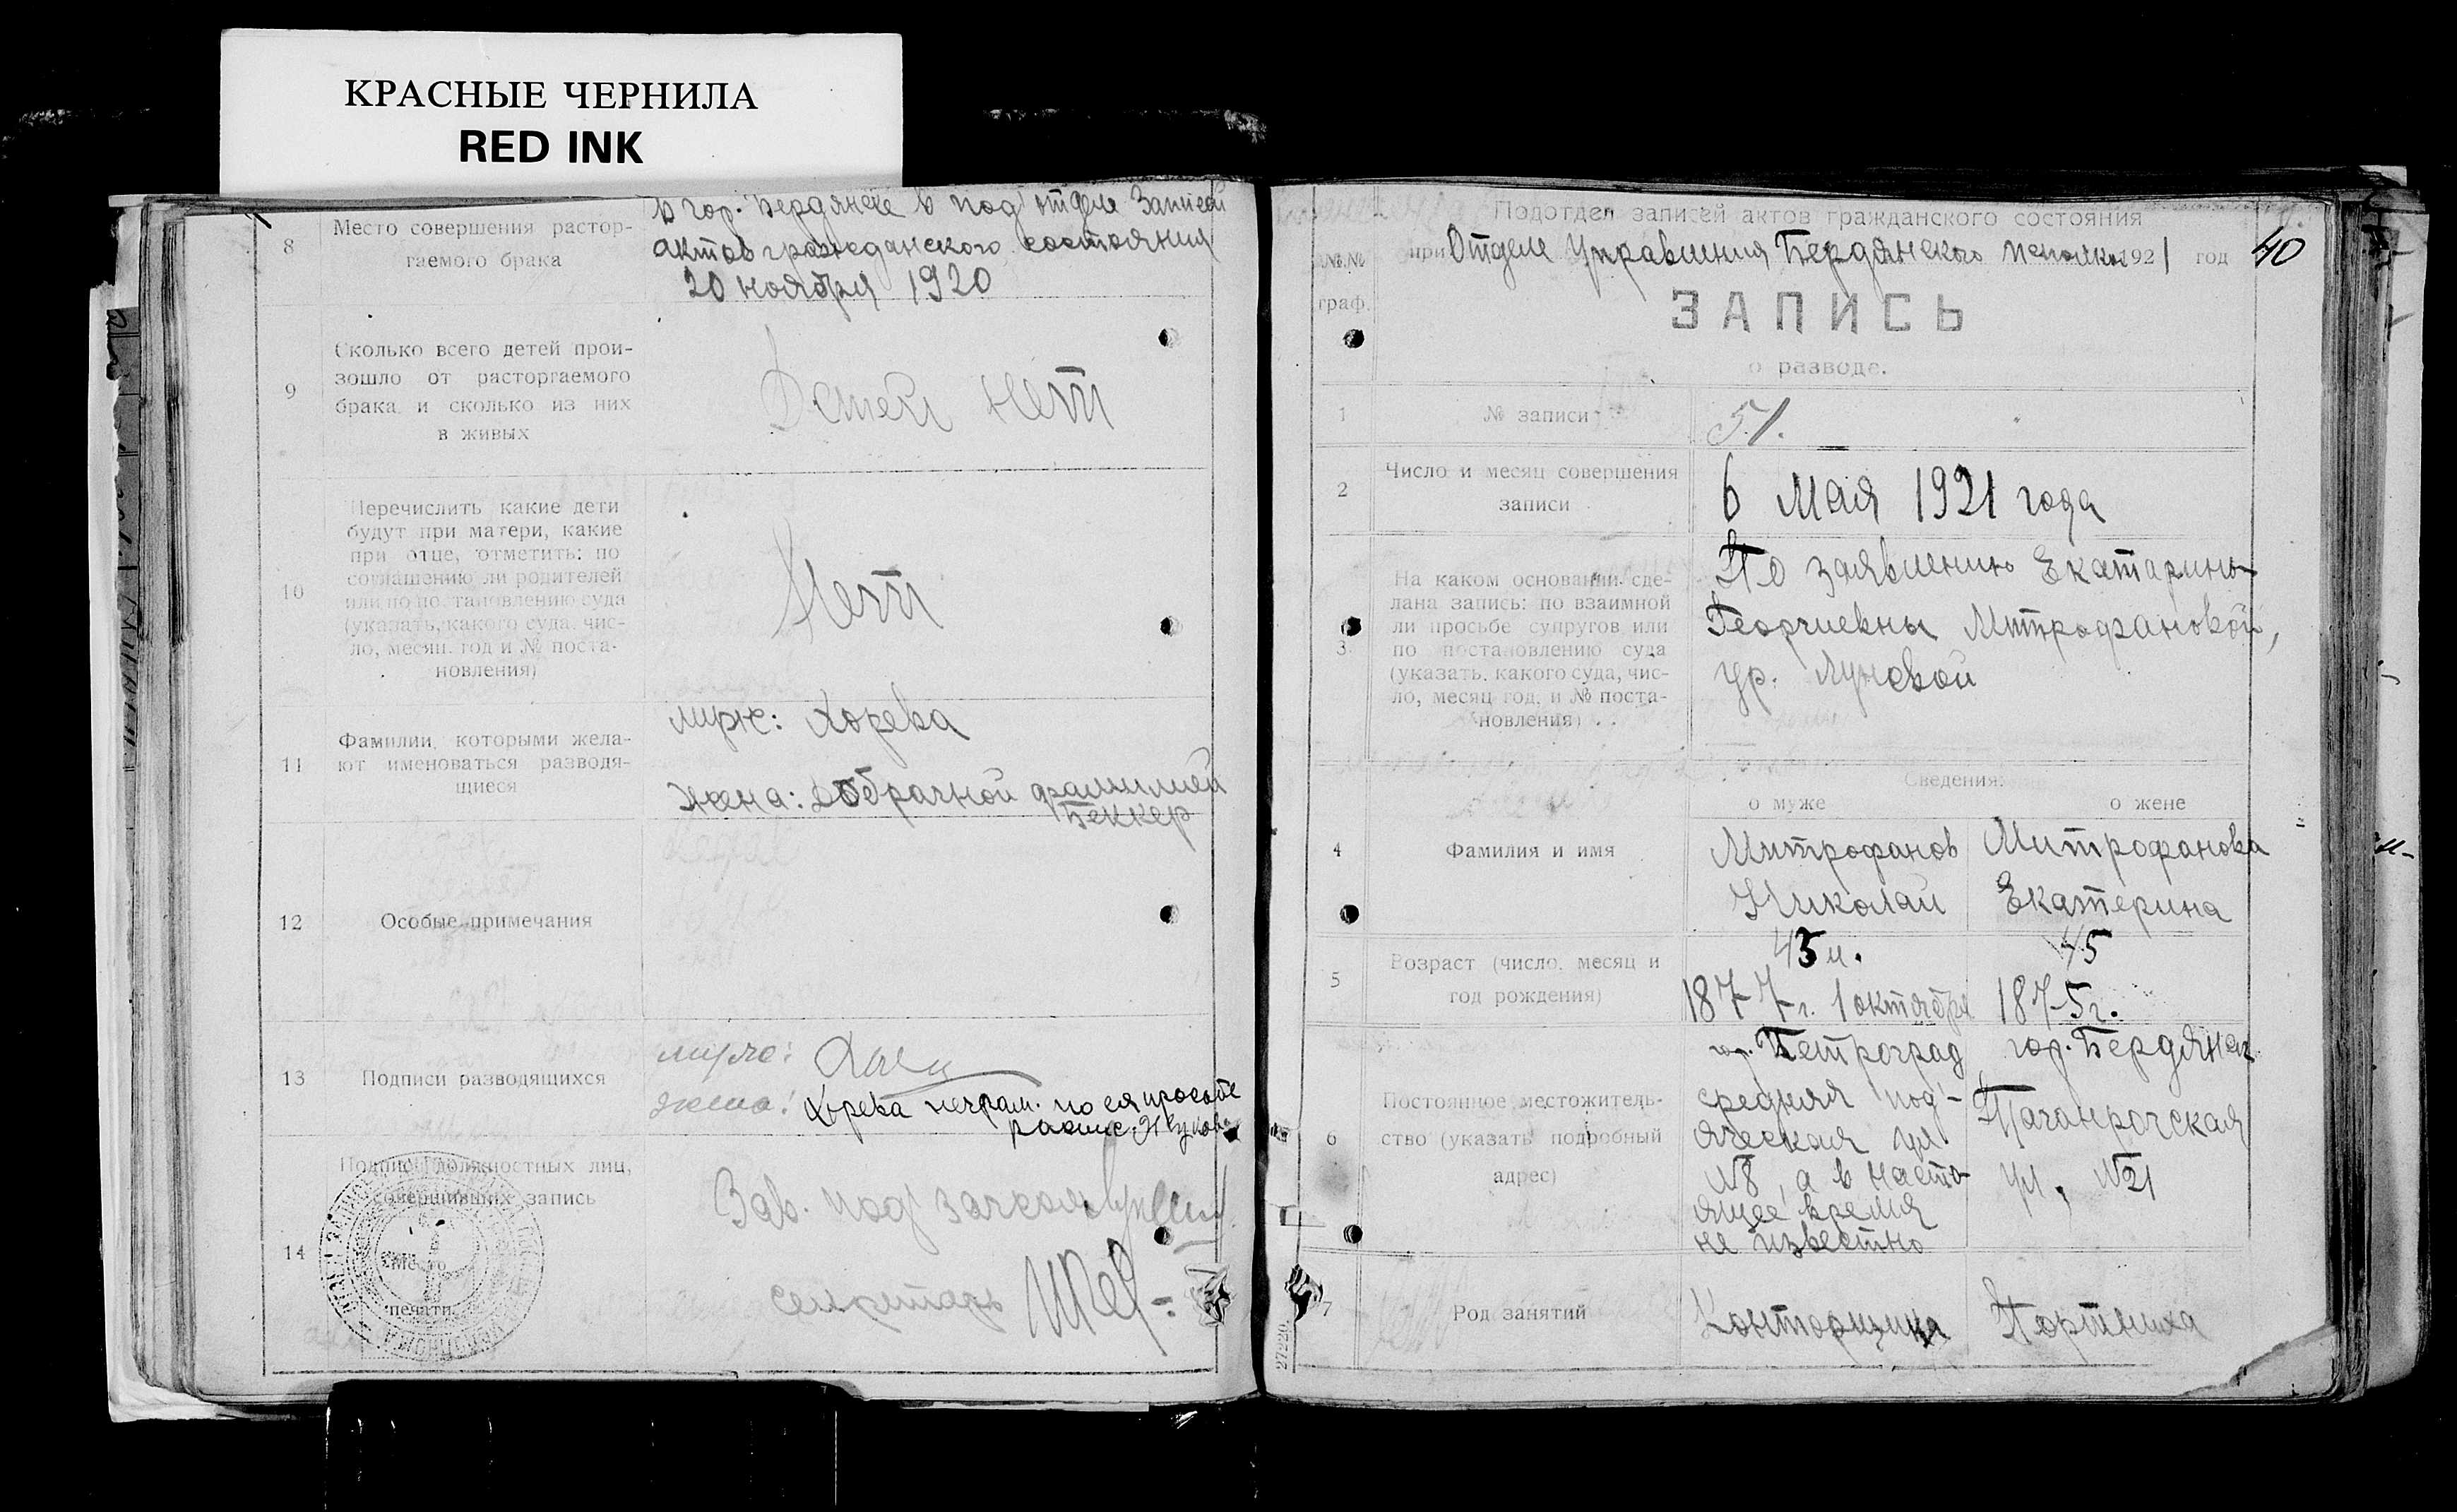 КРАСНЫЕ ЧЕРНИЛА
RED INK
8
Место совершения растор-
гаемого брака
в гор. Бердянске в под'отделе Записей
актов гражданского состояния
20 ноября 1920
9
Сколько всего детей прои-
зошло от расторгаемого
брака и сколько из них
в живых
Детей нет
10
Перечислить какие дети
будут при матери, какие
при отце, отметить: по
соглашению ли родителей
или по постановлению суда
(указать, какого суда, чис-
ло, месяц, год и № поста-
новления)
Нет
11
Фамилии, которыми жела-
ют именоваться разводя-
щиеся
муж: Хорева
жена: добрачной фамилией
Беккер
12
Особые примечания
13
Подписи разводящихся
муж:
жена: Хорева неграм. по ея просьбе
14
Подписи должностных лиц,
совершивших запись
Место
печати
Зав. под'
секретарь
Подотдел записей актов гражданского состояния
№№
граф.
при Отделе Управления Бердянского Исполком 1921 год
40
ЗАПИСЬ
о разводе.
1
№ записи
51.
2
Число и месяц совершения
записи
6 Мая 1921 года
3
На каком основании сде-
лана запись: по взаимной
ли просьбе супругов или
по постановлению суда
(указать, какого суда, чис-
ло, месяц год, и № поста-
новления) . .
По заявлению Екатарины
Георгиевны Митрофановой,
ур. Луновой
Сведения:
о муже
о жене
4
Фамилия и имя
Митрофанов
Николай
Митрофанова
Екатерина
5
Возраст (число, месяц и
год рождения)
43 л.
1877 г. 1 октября
45
1875 г.
6
Постоянное местожитель-
ство (указать подробный
адрес)
гор. Петроград
средняя под'-
яческая ул
№8, а в насто-
ящее время
не известно
гор. Бердянск
Таганрогская
ул. №21
7
Род занятий
Конторщик
Портниха
27220